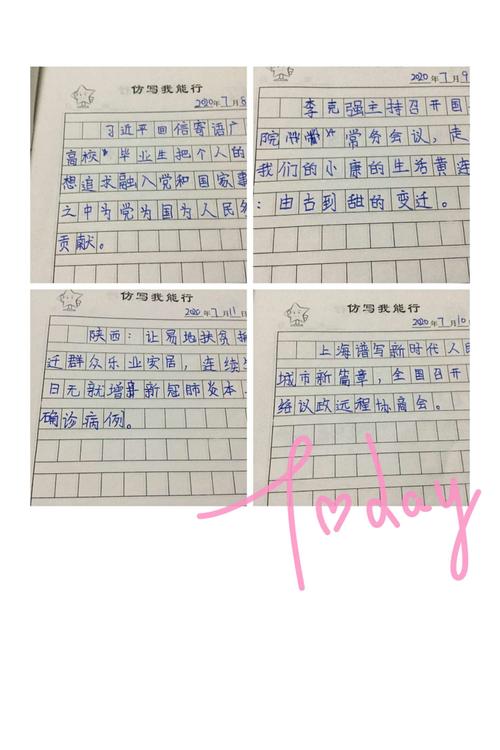 仿写我能行
2020年7月8
习近平回信寄语广
高校"毕业生把个人的
想追求融入党和国家事
之中为党为国为人民
贡献。
仿写我能行
2020年7月9
李克强主持召开国
院 常务会议,走
我们的小康的生活黄连
:由古到甜的变迁。
仿写我能行
2020年7月11日
陕西:让易地扶贫
迁群众乐业安居,连续
日无新增新冠肺炎本
确诊病例。
仿写我能行
2020年7月10
上海谱写新时代人民
城市新篇章,全国召开
经议政远程协商会。
Today